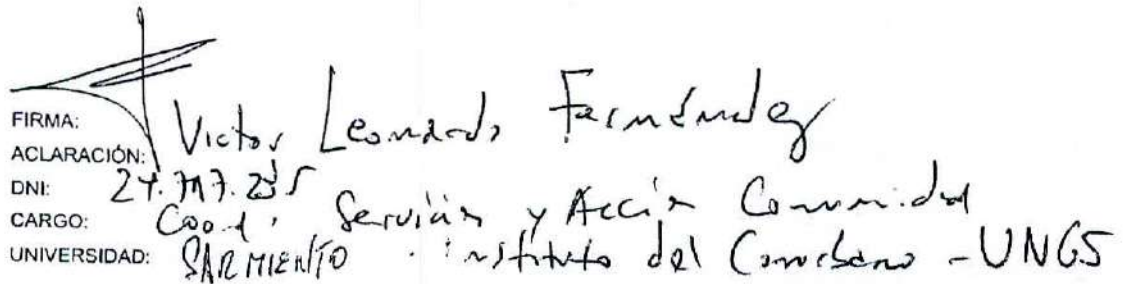 FIRMA:
ACLARACIÓN: Victor Leonardo Fernández
DNI:
CARGO: Coord. Servicios y Acción Comunidad
UNIVERSIDAD: SARMIENTO - instituto del Conurbano - UNGS